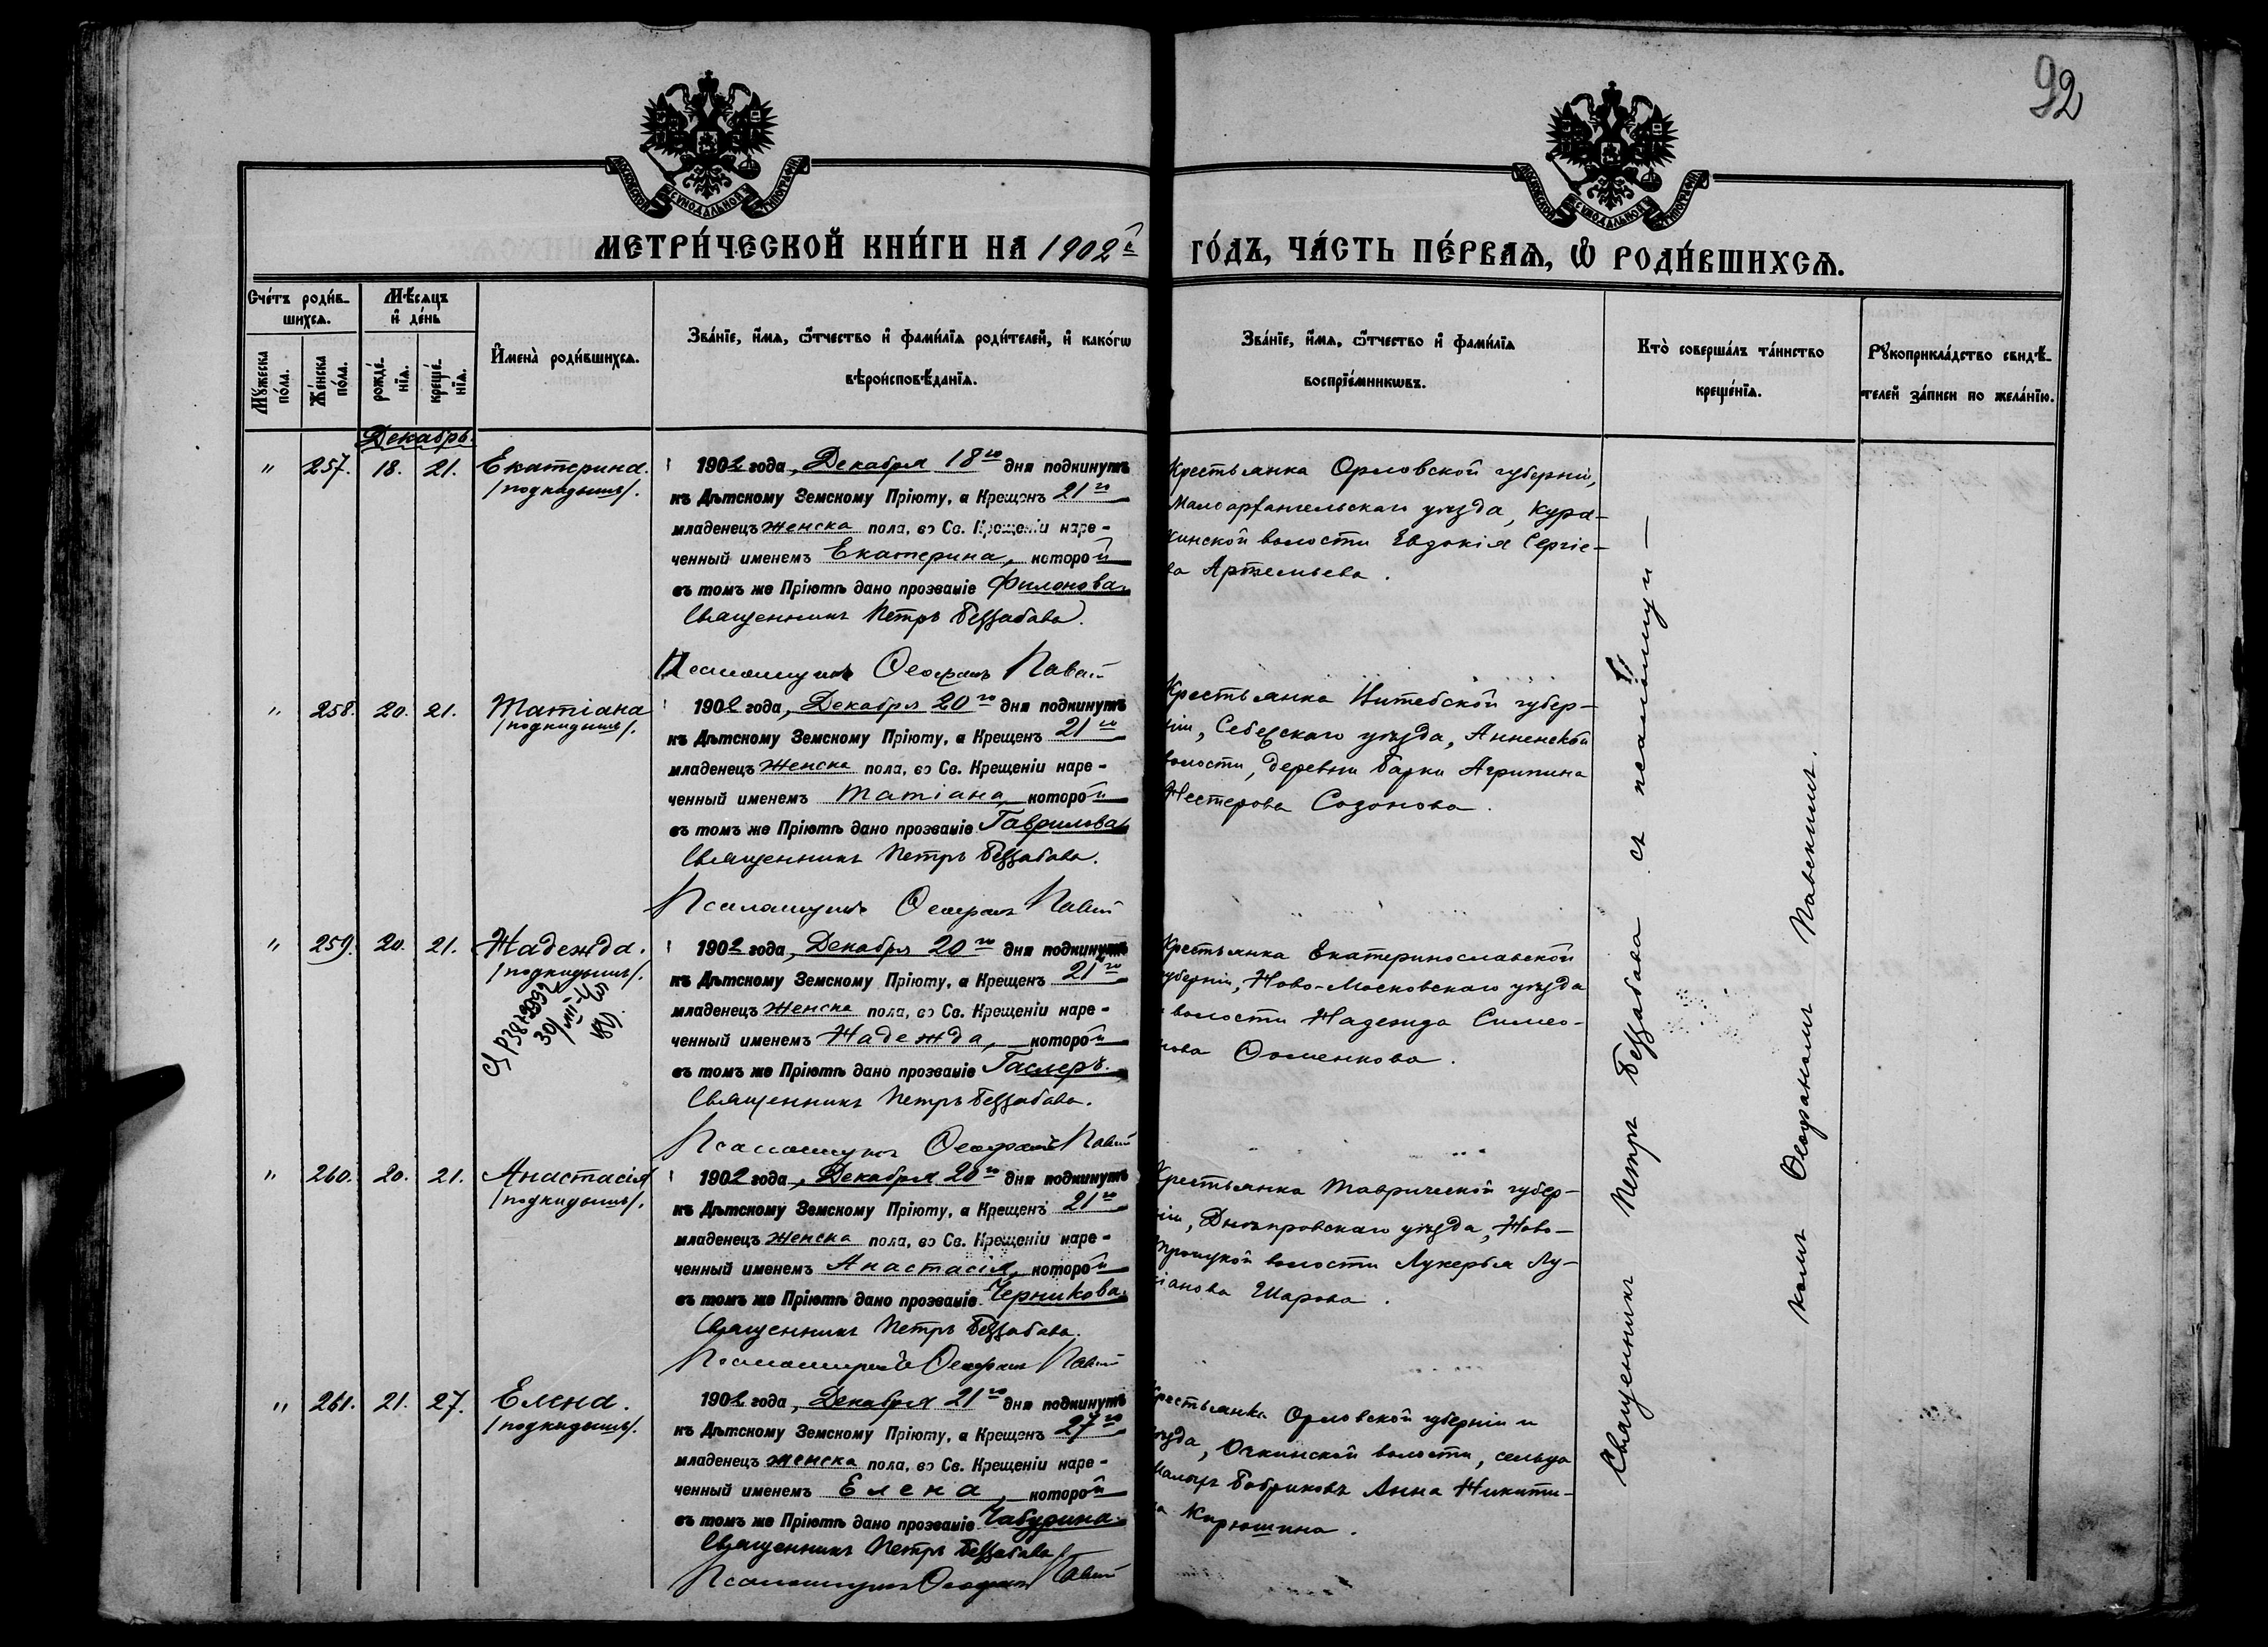 92
МОСКОВСКОЙ СѴНОДАЛЬНОЙ ТИПОГРАФІИ
МОСКОВСКОЙ СѴНОДАЛЬНОЙ ТИПОГРАФІИ
МЕТРИ́ЧЕСКОЙ КНИ́ГИ НА 1902й ГО́ДЪ, ЧА́СТЬ ПЕ́РВАѦ, Ѡ РОДИ́ВШИХСѦ.
Счетъ родив-
шихся.
Мужеска
пола.
Женска
пола.
Мѣсяцъ
и день
рожде-
нія.
креще-
нія.
Имена родившихся.
Званіе, имя, ѿтчество и фамилія родителей, и какогѡ
вѣроисповѣданія.
Званіе, имя, ѿтчество и фамилія
воспріемникѡвъ.
Кто совершалъ таинство
крещенія.
Рукоприкладство свидѣ-
телей записи по желанію.
Декабрь.
" 257. 18. 21. Екатерина.
/подкидышъ/.
1902 года, Декабря 18го дня подкинутъ
къ Дѣтскому Земскому Пріюту, а Крещенъ 21го
младенецъ женска пола, во Св. Крещеніи наре-
ченный именемъ Екатерина, которой
въ томъ же Пріютѣ дано прозваніе Филонова.
Священникъ Петръ Беззабава.
Псаломщикъ Феофанъ
Крестьянка Орловской губерніи,
Малоархангельскаго уѣзда, Кура-
кинской волости Евдокія Сергіе-
ва Артемьева.
" 258. 20. 21. Татіана
/подкидышъ/.
1902 года, Декабря 20го дня подкинутъ
къ Дѣтскому Земскому Пріюту, а Крещенъ 21го
младенецъ женска пола, во Св. Крещеніи наре-
ченный именемъ Татіана, которой
въ томъ же Пріютѣ дано прозваніе Гаврилова.
Священникъ Петръ Беззабава.
Псаломщикъ Феофанъ
Крестьянка Витебской губер-
ніи, Себежскаго уѣзда, Анненской
волости, деревни Барки Агрипина
Нестерова Созонова.
" 259. 20. 21. Надежда.
/подкидышъ/.
1902 года, Декабря 20го дня подкинутъ
къ Дѣтскому Земскому Пріюту, а Крещенъ 21го
младенецъ женска пола, во Св. Крещеніи наре-
ченный именемъ Надежда, которой
въ томъ же Пріютѣ дано прозваніе Гаслеръ.
Священникъ Петръ Беззабава.
Псаломщикъ Феофанъ
Крестьянка Екатеринославской
губерніи, Ново-Московскаго уѣзда
волости Надежда Симео-
нова
" 260. 20. 21. Анастасія
/подкидышъ/.
1902 года, Декабря 20го дня подкинутъ
къ Дѣтскому Земскому Пріюту, а Крещенъ 21го
младенецъ женска пола, во Св. Крещеніи наре-
ченный именемъ Анастасія, которой
въ томъ же Пріютѣ дано прозваніе Черникова.
Священникъ Петръ Беззабава.
Псаломщикъ Феофанъ
Крестьянка Таврической губер-
ніи, Днѣпровскаго уѣзда, Ново-
Троицкой волости Лукерья Лу-
кіанова Шарова.
" 261. 21. 27. Елена.
/подкидышъ/.
1902 года, Декабря 21го дня подкинутъ
къ Дѣтскому Земскому Пріюту, а Крещенъ 27го
младенецъ женска пола, во Св. Крещеніи наре-
ченный именемъ Елена, которой
въ томъ же Пріютѣ дано прозваніе Чабурина.
Священникъ Петръ Беззабава
Псаломщикъ Феофанъ
Крестьянка Орловской губерніи и
уѣзда, волости, сельца
Малыхъ Бобриковъ Анна Никити-
на Карюшина.
Священникъ Петръ Беззабава съ псаломщи-
комъ Феофаномъ Павскимъ.